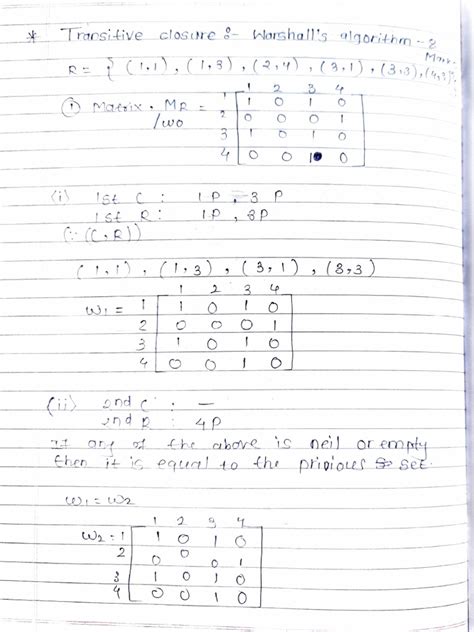 * Transitive closure :- Warshall's algorithm - 8 Mar.
R = { (1,1), (1,3), (2,4), (3,1), (3,3), (4,3) }
1 2 3 4
① Matrix. MR = 1 1 0 1 0
/wo 2 0 0 0 1
3 1 0 1 0
4 0 0 1 0
(i) 1st C : 1P, 3 P
1st R : 1P, 3P
(∵ (C,R))
(1,1), (1,3), (3,1), (3,3)
1 2 3 4
w1 = 1 1 0 1 0
2 0 0 0 1
3 1 0 1 0
4 0 0 1 0
(ii) 2nd C : —
2nd R : 4P
if any of the above is neil or empty
then it is equal to the privious set.
w1 = w2
1 2 3 4
w2 = 1 1 0 1 0
2 0 0 0 1
3 1 0 1 0
4 0 0 1 0